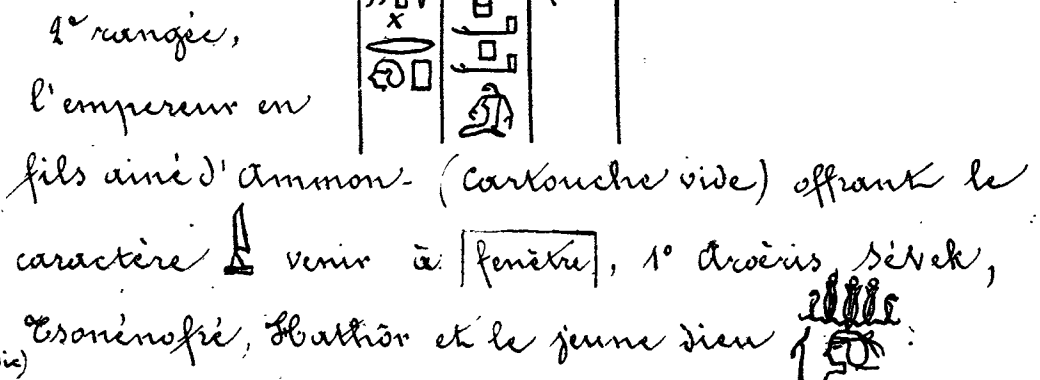 2e rangée,
l'empereur en
fils ainé d'Ammon - (Cartouche vide) offrant le
caractère venir à fenêtre, 1° Aroëris, Sévek,
Tsonénofré, Hathôr et le jeune dieu :